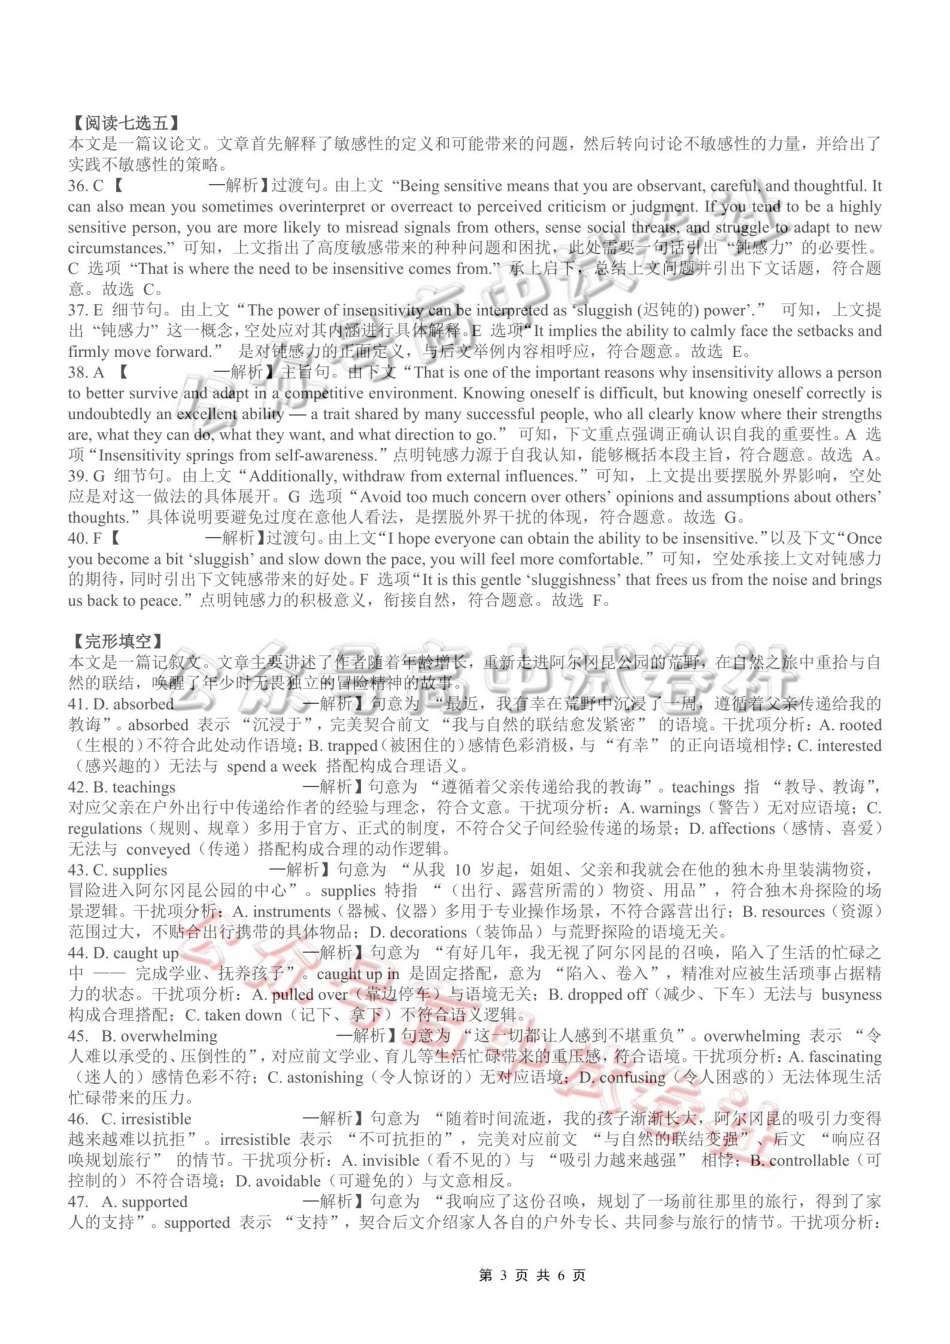 【阅读七选五】
本文是一篇议论文。文章首先解释了敏感性的定义和可能带来的问题，然后转向讨论不敏感性的力量，并给出了
实践不敏感性的策略。
36. C【 —解析】过渡句。由上文 “Being sensitive means that you are observant, careful, and thoughtful. It
can also mean you sometimes overinterpret or overreact to perceived criticism or judgment. If you tend to be a highly
sensitive person, you are more likely to misread signals from others, sense social threats, and struggle to adapt to new
circumstances.” 可知，上文指出了高度敏感带来的种种问题和困扰，此处需要一句话引出 “钝感力” 的必要性。
C 选项 “That is where the need to be insensitive comes from.” 承上启下，总结上文问题并引出下文话题，符合题
意。故选 C。
37. E 细节句。由上文“The power of insensitivity can be interpreted as ‘sluggish (迟钝的) power’.” 可知，上文提
出 “钝感力” 这一概念，空处应对其内涵进行具体解释。E 选项“It implies the ability to calmly face the setbacks and
firmly move forward.” 是对钝感力的正面定义，与后文举例内容相呼应，符合题意。故选 E。
38. A 【 —解析】主旨句。由下文“That is one of the important reasons why insensitivity allows a person
to better survive and adapt in a competitive environment. Knowing oneself is difficult, but knowing oneself correctly is
undoubtedly an excellent ability — a trait shared by many successful people, who all clearly know where their strengths
are, what they can do, what they want, and what direction to go.” 可知，下文重点强调正确认识自我的重要性。A 选
项“Insensitivity springs from self-awareness.”点明钝感力源于自我认知，能够概括本段主旨，符合题意。故选 A。
39. G 细节句。由上文“Additionally, withdraw from external influences.”可知，上文提出要摆脱外界影响，空处
应是对这一做法的具体展开。G 选项“Avoid too much concern over others’ opinions and assumptions about others’
thoughts.”具体说明要避免过度在意他人看法，是摆脱外界干扰的体现，符合题意。故选 G。
40. F【 —解析】过渡句。由上文“I hope everyone can obtain the ability to be insensitive.”以及下文“Once
you become a bit ‘sluggish’ and slow down the pace, you will feel more comfortable.”可知，空处承接上文对钝感力
的期待，同时引出下文钝感带来的好处。F 选项“It is this gentle ‘sluggishness’ that frees us from the noise and brings
us back to peace.”点明钝感力的积极意义，衔接自然，符合题意。故选 F。
【完形填空】
本文是一篇记叙文。文章主要讲述了作者随着年龄增长，重新走进阿尔冈昆公园的荒野，在自然之旅中重拾与自
然的联结，唤醒了年少时无畏独立的冒险精神的故事。
41. D. absorbed —解析】句意为 “最近，我有幸在荒野中沉浸了一周，遵循着父亲传递给我的
教诲”。absorbed 表示 “沉浸于”，完美契合前文 “我与自然的联结愈发紧密” 的语境。干扰项分析：A. rooted
（生根的）不符合此处动作语境；B. trapped（被困住的）感情色彩消极，与 “有幸” 的正向语境相悖；C. interested
（感兴趣的）无法与 spend a week 搭配构成合理语义。
42. B. teachings —解析】句意为 “遵循着父亲传递给我的教诲”。teachings 指 “教导、教诲”，
对应父亲在户外出行中传递给作者的经验与理念，符合文意。干扰项分析：A. warnings（警告）无对应语境；C.
regulations（规则、规章）多用于官方、正式的制度，不符合父子间经验传递的场景；D. affections（感情、喜爱）
无法与 conveyed（传递）搭配构成合理的动作逻辑。
43. C. supplies —解析】句意为 “从我 10 岁起，姐姐、父亲和我就会在他的独木舟里装满物资，
冒险进入阿尔冈昆公园的中心”。supplies 特指 “（出行、露营所需的）物资、用品”，符合独木舟探险的场
景逻辑。干扰项分析：A. instruments（器械、仪器）多用于专业操作场景，不符合露营出行；B. resources（资源）
范围过大，不贴合出行携带的具体物品；D. decorations（装饰品）与荒野探险的语境无关。
44. D. caught up —解析】句意为 “有好几年，我无视了阿尔冈昆的召唤，陷入了生活的忙碌之
中 —— 完成学业、抚养孩子”。caught up in 是固定搭配，意为 “陷入、卷入”，精准对应被生活琐事占据精
力的状态。干扰项分析：A. pulled over（靠边停车）与语境无关；B. dropped off（减少、下车）无法与 busyness
构成合理搭配；C. taken down（记下、拿下）不符合语义逻辑。
45. B. overwhelming —解析】句意为 “这一切都让人感到不堪重负”。overwhelming 表示 “令
人难以承受的、压倒性的”，对应前文学业、育儿等生活忙碌带来的重压感，符合语境。干扰项分析：A. fascinating
（迷人的）感情色彩不符；C. astonishing（令人惊讶的）无对应语境；D. confusing（令人困惑的）无法体现生活
忙碌带来的压力。
46. C. irresistible —解析】句意为 “随着时间流逝，我的孩子渐渐长大，阿尔冈昆的吸引力变得
越来越难以抗拒”。irresistible 表示 “不可抗拒的”，完美对应前文 “与自然的联结变强”、后文 “响应召
唤规划旅行” 的情节。干扰项分析：A. invisible（看不见的）与 “吸引力越来越强” 相悖；B. controllable（可
控制的）不符合语境；D. avoidable（可避免的）与文意相反。
47. A. supported —解析】句意为 “我响应了这份召唤，规划了一场前往那里的旅行，得到了家
人的支持”。supported 表示 “支持”，契合后文介绍家人各自的户外专长、共同参与旅行的情节。干扰项分析：
第 3 页 共 6 页
公众号高中试卷社
公众号高中试卷社
公众号高中试卷社